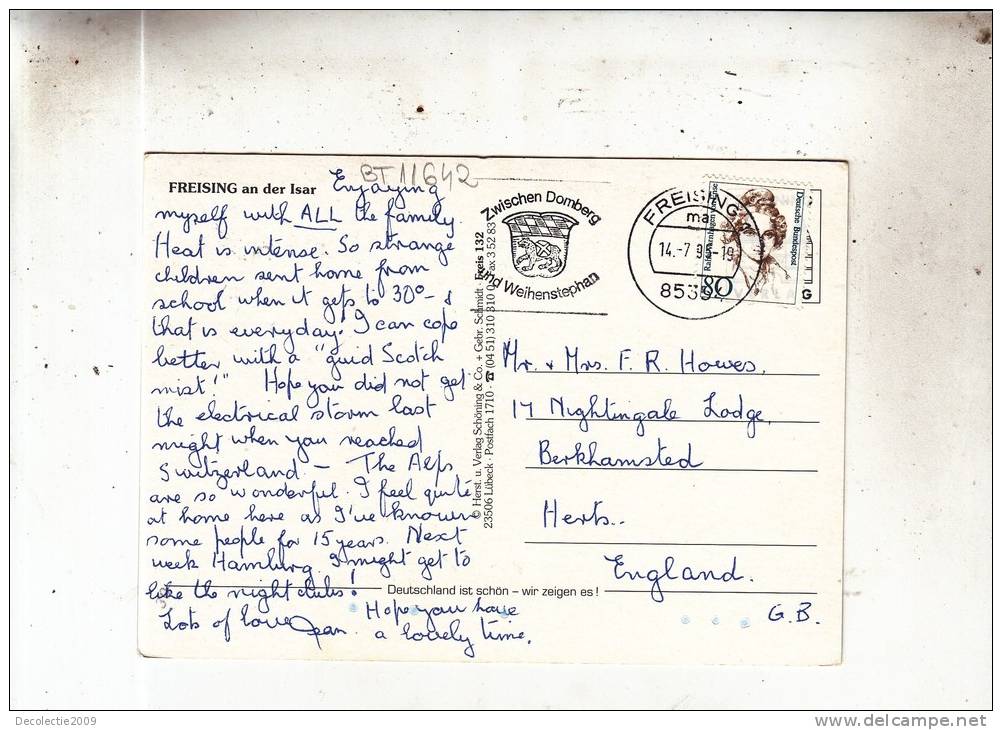 BT 11642
FREISING an der Isar
Enjoying
myself with ALL the family.
Heat is intense. So strange
children sent home from
school when it gets to 30° - &
that is everyday. I can cope
better with a "guid Scotch
mist!" Hope you did not get
the electrical storm last
night when you reached
Switzerland - The Alps
are so wonderful. I feel quite
at home here as I've known
some people for 15 years. Next
week Hamburg. I might get to
like the night clubs!
Lots of love Jean. Hope you have
a lovely time.
Deutschland ist schön – wir zeigen es!
© Herst. u. Verlag Schöning & Co. + Gebr. Schmidt · Freis 132
23506 Lübeck · Postfach 1710 · ☎ (04 51) 310 310 · Fax 3 52 83
Zwischen Domberg
und Weihenstephan
FREISING
ma
14.-7.9 -19
8535
Deutsche Bundespost
80
G
Mr. & Mrs. F. R. Howes,
17 Nightingale Lodge,
Berkhamsted
Herts..
England.
G.B.
Decolectie2009
delcampe.net